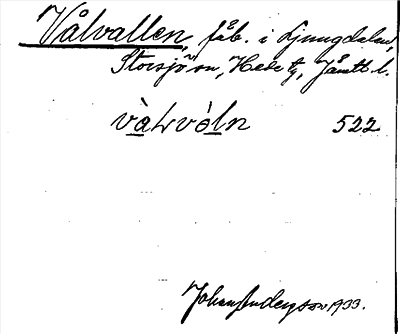 Vålvallen, fäb. i Ljungdalen,
Storsjö sn, Hede tg, Jämtl. l.
våLvóln 522
Johan Anderson 1933.